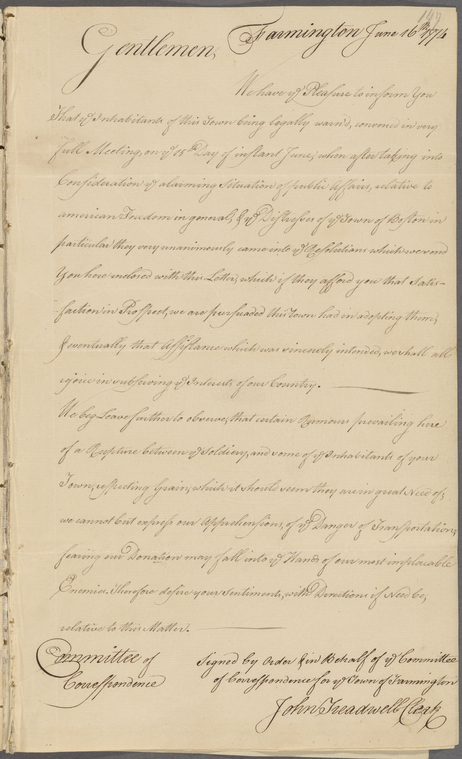 Farmington June 16th 1774
Gentlemen,
We have ye Pleasure to inform You
That ye Inhabitants of this Town being legally warn'd, convened in very
full Meeting, on ye 15th Day of instant June, when after taking into
Consideration ye alarming Situation of public Affairs, relative to
american Freedom in general, & ye Distresses of ye Town of Boston in
particular they very unanimously came into ye Resolutions which we send
You here inclosed with this Letter, which if they afford you that Satis-
faction in Prospect, we are perswaded this Town had in adopting them,
& eventually that Assistance which was sincerely intended, we shall all
rejoice in subserving ye Interests of our Country.
We beg Leave further to observe, that certain Rumours prevailing here
of a Rupture between ye Soldiery, and some of ye Inhabitants of your
Town, respecting Grain, which it should seem they are in great Need of,
we cannot but express our Apprehensions, of ye Danger of Transportation,
fearing our Donation may fall into ye Hands of our most implacable
Enemies. Therefore desire your Sentiments, with Directions if Need be,
relative to this Matter.
Committee of
Correspondence
Signed by Order & in Behalf of ye Committee
of Correspondence for ye Town of Farmington
John Treadwell Clerk